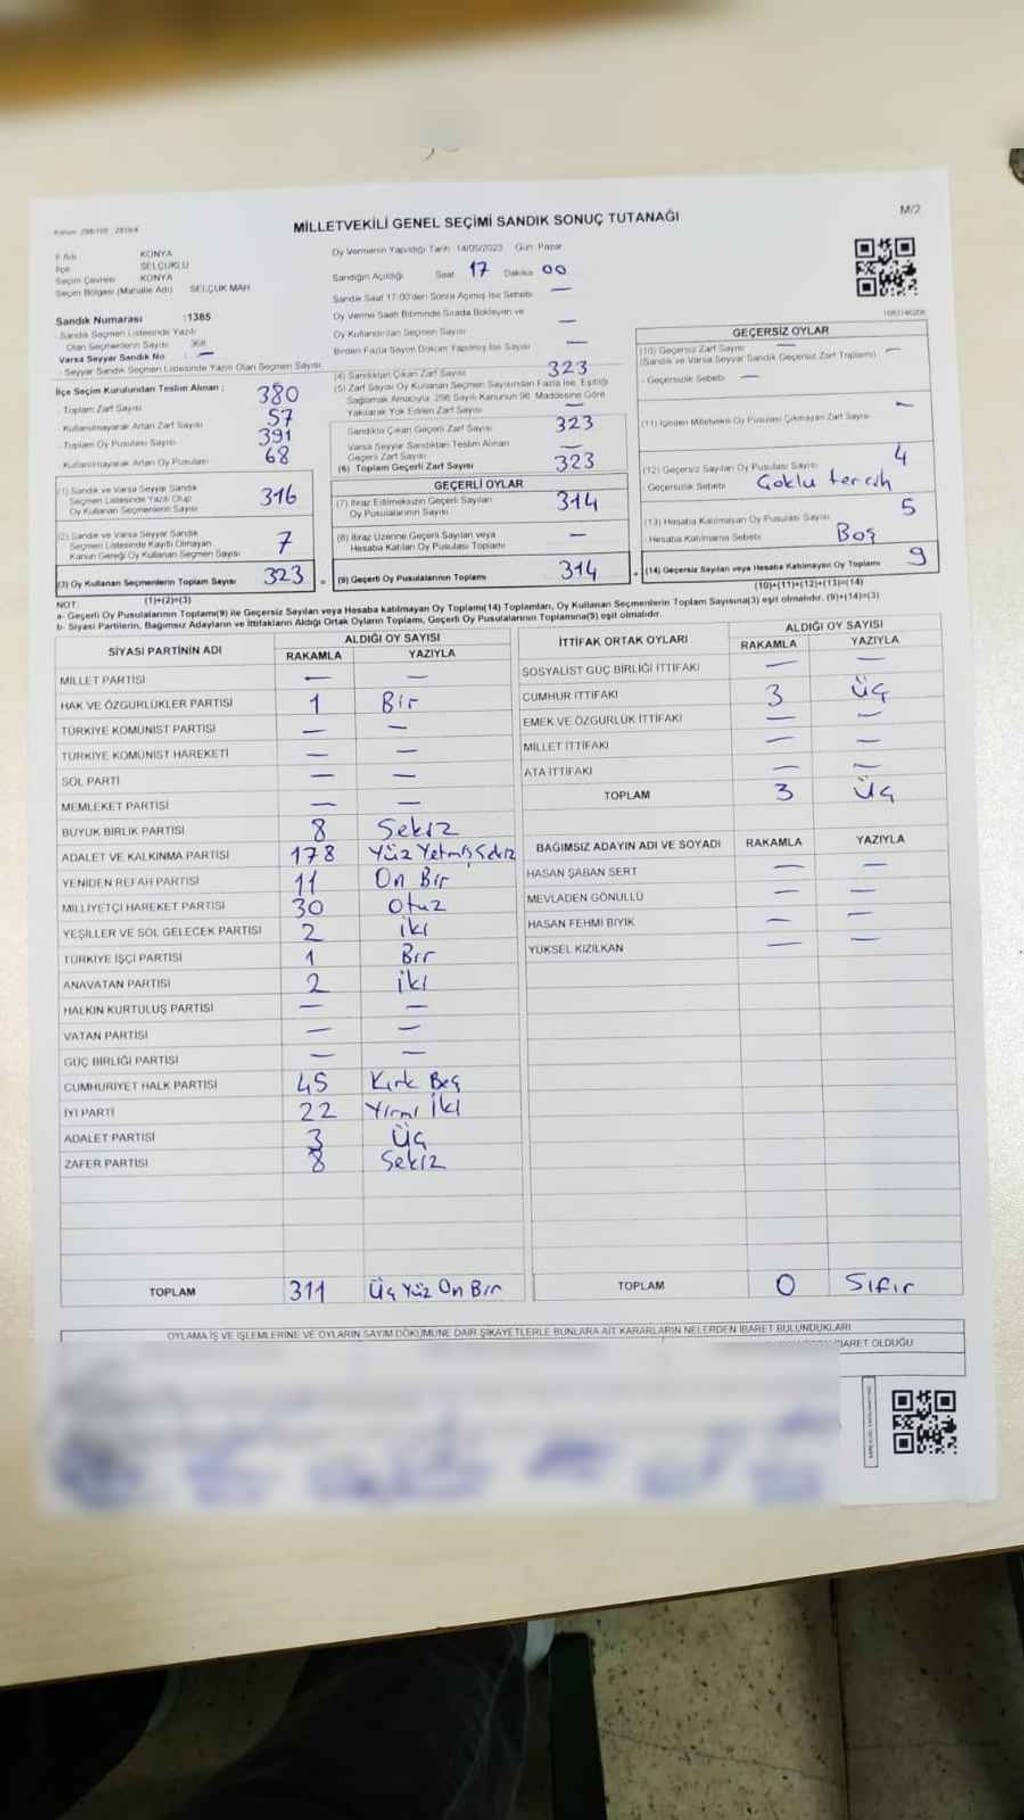 M/2
MİLLETVEKİLİ GENEL SEÇİMİ SANDIK SONUÇ TUTANAĞI
İl Adı KONYA
İlçe SELÇUKLU
Seçim Çevresi KONYA
Seçim Bölgesi (Mahalle Adı) SELÇUK MAH
Sandık Numarası :1385
Sandık Seçmen Listesinde Yazılı
Olan Seçmenlerin Sayısı 368
Varsa Seyyar Sandık No : —
Seyyar Sandık Seçmen Listesinde Yazılı Olan Seçmen Sayısı
İlçe Seçim Kurulundan Teslim Alınan :
Toplam Zarf Sayısı 380
Kullanılmayarak Artan Zarf Sayısı 57
Toplam Oy Pusulası Sayısı 391
Kullanılmayarak Artan Oy Pusulası 68
(1) Sandık ve Varsa Seyyar Sandık
Seçmen Listesinde Yazılı Olup
Oy Kullanan Seçmenlerin Sayısı 316
(2) Sandık ve Varsa Seyyar Sandık
Seçmen Listesinde Kayıtlı Olmayan
Kanun Gereği Oy Kullanan Seçmen Sayısı 7
(3) Oy Kullanan Seçmenlerin Toplam Sayısı 323
(1)+(2)=(3)
Oy Vermenin Yapıldığı Tarih 14/05/2023 Gün Pazar
Sandığın Açıldığı Saat 17 Dakika 00
Sandık Saat 17:00'den Sonra Açılmış İse Sebebi —
Oy Verme Saati Bitiminde Sırada Bekleyen ve
Oy Kullandırılan Seçmen Sayısı —
Birden Fazla Sayım Döküm Yapılmış İse Sayısı —
(4) Sandıktan Çıkan Zarf Sayısı 323
(5) Zarf Sayısı Oy Kullanan Seçmen Sayısından Fazla İse, Eşitliği
Sağlamak Amacıyla, 298 Sayılı Kanunun 98. Maddesine Göre
Yakılarak Yok Edilen Zarf Sayısı —
Sandıkta Çıkan Geçerli Zarf Sayısı 323
Varsa Seyyar Sandıktan Teslim Alınan
Geçerli Zarf Sayısı —
(6) Toplam Geçerli Zarf Sayısı 323
GEÇERLİ OYLAR
(7) İtiraz Edilmeksizin Geçerli Sayılan
Oy Pusulalarının Sayısı 314
(8) İtiraz Üzerine Geçerli Sayılan veya
Hesaba Katılan Oy Pusulası Toplamı —
(9) Geçerli Oy Pusulalarının Toplamı 314
GEÇERSİZ OYLAR
(10) Geçersiz Zarf Sayısı —
(Sandık ve Varsa Seyyar Sandık Geçersiz Zarf Toplamı) —
Geçersizlik Sebebi —
(11) İçinden Milletvekili Oy Pusulası Çıkmayan Zarf Sayısı —
(12) Geçersiz Sayılan Oy Pusulası Sayısı 4
Geçersizlik Sebebi Çoklu tercih
(13) Hesaba Katılmayan Oy Pusulası Sayısı 5
Hesaba Katılmama Sebebi Boş
(14) Geçersiz Sayılan veya Hesaba Katılmayan Oy Toplamı 9
(10)+(11)+(12)+(13)=(14)
NOT:
a- Geçerli Oy Pusulalarının Toplamı(9) ile Geçersiz Sayılan veya Hesaba katılmayan Oy Toplamı(14) Toplamları, Oy Kullanan Seçmenlerin Toplam Sayısına(3) eşit olmalıdır. (9)+(14)=(3)
b- Siyasi Partilerin, Bağımsız Adayların ve İttifakların Aldığı Ortak Oyların Toplamı, Geçerli Oy Pusulalarının Toplamına(9) eşit olmalıdır.
SİYASİ PARTİNİN ADI ALDIĞI OY SAYISI
RAKAMLA YAZIYLA
MİLLET PARTİSİ — —
HAK VE ÖZGÜRLÜKLER PARTİSİ 1 Bir
TÜRKİYE KOMÜNİST PARTİSİ — —
TÜRKİYE KOMÜNİST HAREKETİ — —
SOL PARTİ — —
MEMLEKET PARTİSİ — —
BÜYÜK BİRLİK PARTİSİ 8 Sekiz
ADALET VE KALKINMA PARTİSİ 178 Yüz Yetmiş Sekiz
YENİDEN REFAH PARTİSİ 11 On Bir
MİLLİYETÇİ HAREKET PARTİSİ 30 Otuz
YEŞİLLER VE SOL GELECEK PARTİSİ 2 İki
TÜRKİYE İŞÇİ PARTİSİ 1 Bir
ANAVATAN PARTİSİ 2 İki
HALKIN KURTULUŞ PARTİSİ — —
VATAN PARTİSİ — —
GÜÇ BİRLİĞİ PARTİSİ — —
CUMHURİYET HALK PARTİSİ 45 Kırk Beş
İYİ PARTİ 22 Yirmi İki
ADALET PARTİSİ 3 Üç
ZAFER PARTİSİ 8 Sekiz
TOPLAM 311 Üç Yüz On Bir
İTTİFAK ORTAK OYLARI ALDIĞI OY SAYISI
RAKAMLA YAZIYLA
SOSYALİST GÜÇ BİRLİĞİ İTTİFAKI — —
CUMHUR İTTİFAKI 3 Üç
EMEK VE ÖZGÜRLÜK İTTİFAKI — —
MİLLET İTTİFAKI — —
ATA İTTİFAKI — —
TOPLAM 3 Üç
BAĞIMSIZ ADAYIN ADI VE SOYADI RAKAMLA YAZIYLA
HASAN ŞABAN SERT — —
MEVLADEN GÖNÜLLÜ — —
HASAN FEHMİ BIYIK — —
YÜKSEL KIZILKAN — —
TOPLAM 0 Sıfır
OYLAMA İŞ VE İŞLEMLERİNE VE OYLARIN SAYIM DÖKÜMÜNE DAİR ŞİKAYETLERLE BUNLARA AİT KARARLARIN NELERDEN İBARET BULUNDUKLARI
OLDUĞU